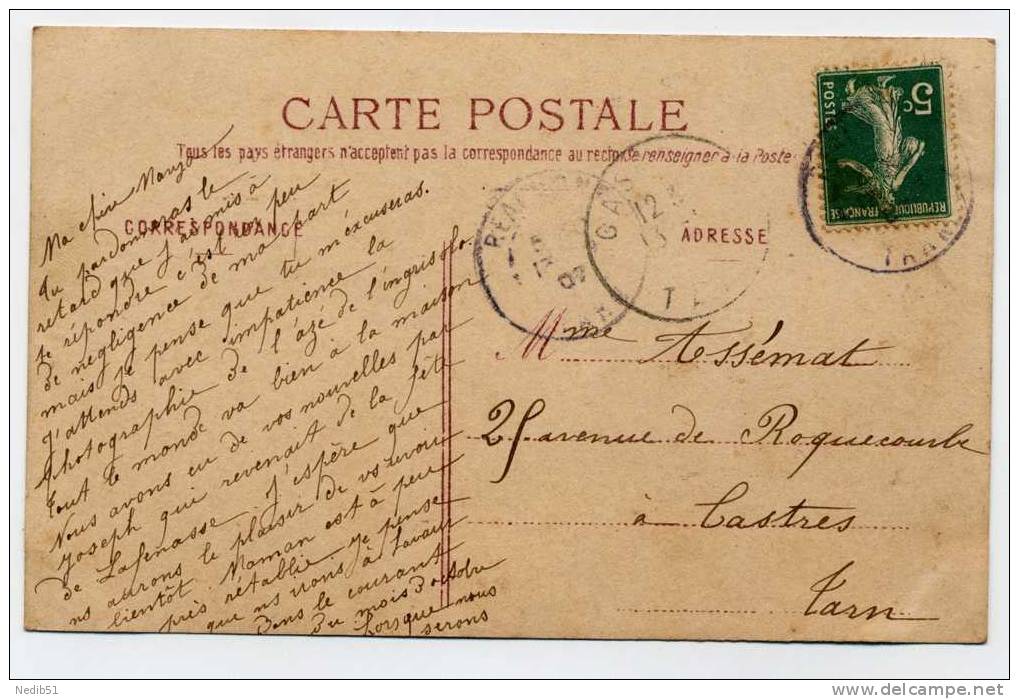 CARTE POSTALE
Tous les pays étrangers n'acceptent pas la correspondance au recto (se renseigner à la Poste)
CORRESPONDANCE
ADRESSE
5c
POSTES
REPUBLIQUE FRANÇAISE
12
07
Ma chère
Tu pardonneras le
retard que j'ai mis à
te répondre c'est un peu
de negligence de ma part
mais je pense que tu m'éxcuseras.
J'attends avec impatience la
photographie de l'azé de l'ingristo.
tout le monde va bien à la maison
Nous avons eu de vos nouvelles par
Joseph qui revenait de la fête
de Lafenasse. J'espère que
ns aurons le plaisir de vs avoir
bientôt. Maman est à peu
près rétablie. Je pense
que ns irons à Lavaur
Dans le courant
Du mois d'octobre
Lorsque nous
serons
Mme Assémat
25 avenue de Roquecourbe
à Castres
Tarn
Nedib51
www.delcampe.net